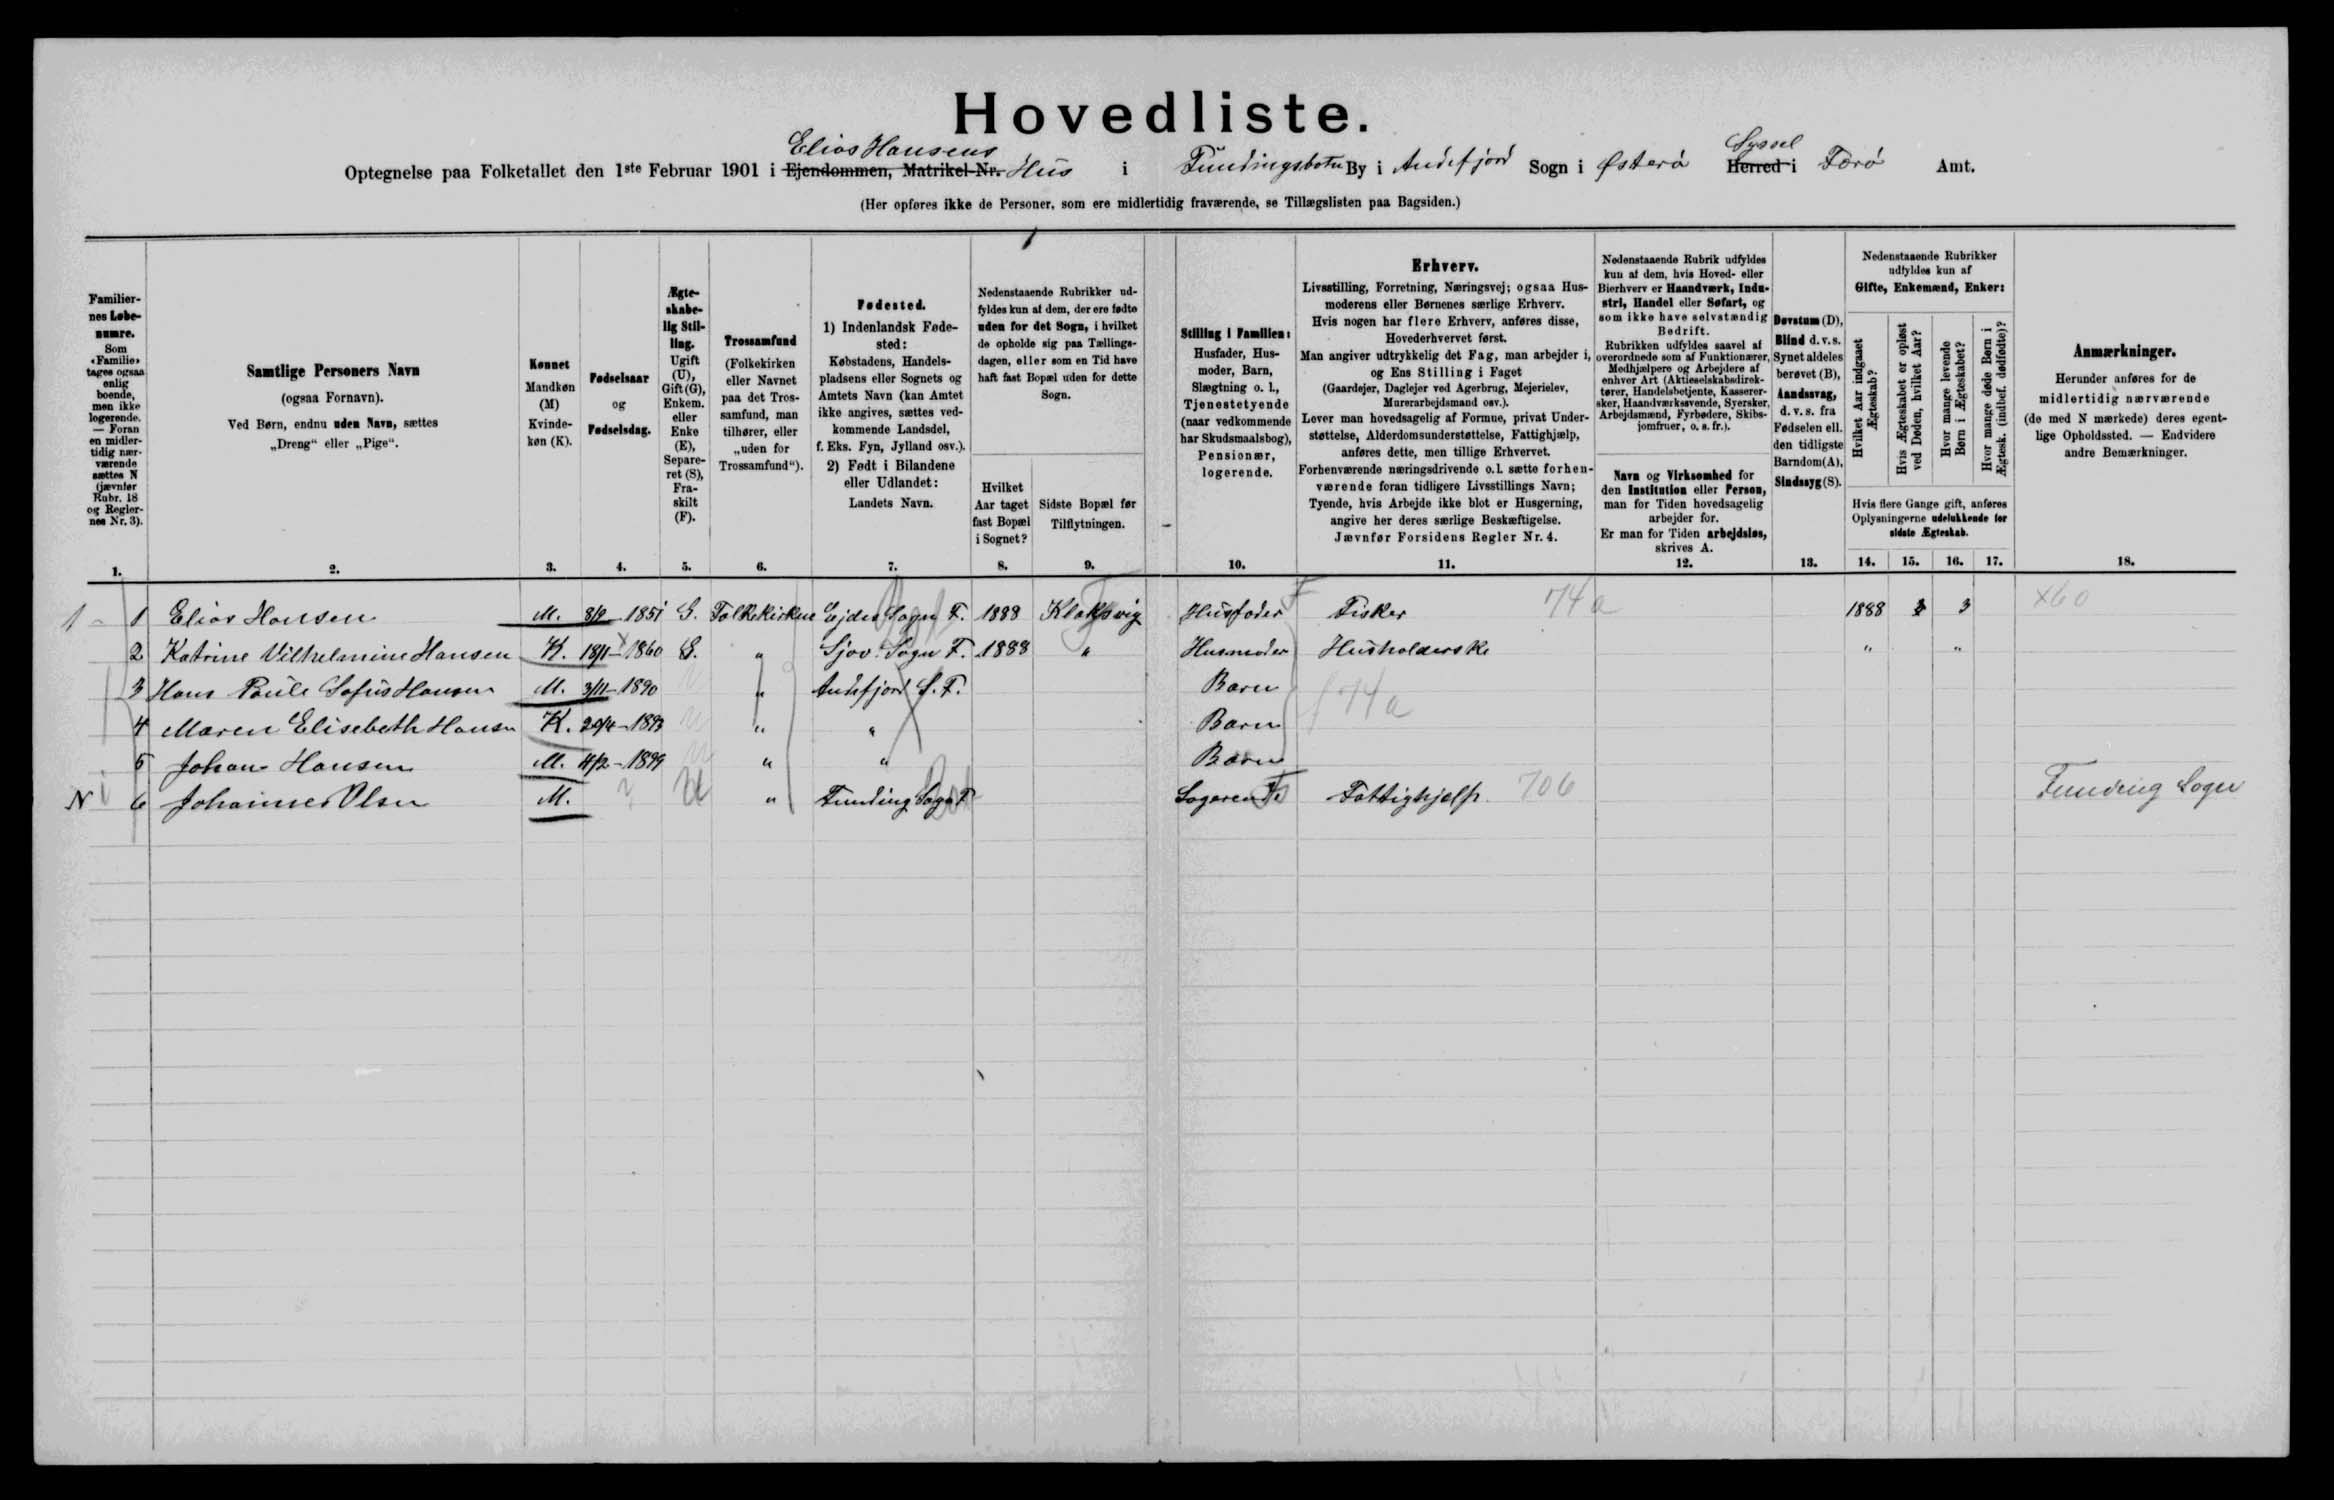 Hovedliste.
Elias Hansens Syssel
Optegnelse paa Folketallet den 1ste Februar 1901 i Ejendommen, Matrikel-Nr. Hus i Fundingsbotn By i Andefjord Sogn i Østerö Herred i Færö Amt.
(Her opføres ikke de Personer, som ere midlertidig fraværende, se Tillægslisten paa Bagsiden.)
Familiernes Løbenumre. Som «Familie» tages ogsaa enlig boende, men ikke logerende. — Foran en midlertidig nærværende sættes N (jævnfør Rubr. 18 og Reglernes Nr. 3).
Samtlige Personers Navn
(ogsaa Fornavn).
Ved Børn, endnu uden Navn, sættes
„Dreng“ eller „Pige“.
Kønnet
Mandkøn (M) Kvindekøn (K).
Fødselsaar og Fødselsdag.
Ægteskabelig Stilling. Ugift (U), Gift (G), Enkem. eller Enke (E), Separeret (S), Fraskilt (F).
Trossamfund
(Folkekirken eller Navnet paa det Trossamfund, man tilhører, eller „uden for Trossamfund“).
Fødested.
1) Indenlandsk Fødested: Købstadens, Handelspladsens eller Sognets og Amtets Navn (kan Amtet ikke angives, sættes vedkommende Landsdel, f. Eks. Fyn, Jylland osv.).
2) Født i Bilandene eller Udlandet: Landets Navn.
Nedenstaaende Rubrikker udfyldes kun af dem, der ere fødte uden for det Sogn, i hvilket de opholde sig paa Tællingsdagen, eller som en Tid have haft fast Bopæl uden for dette Sogn.
Hvilket Aar taget fast Bopæl i Sognet?
Sidste Bopæl før Tilflytningen.
Stilling i Familien:
Husfader, Husmoder, Barn, Slægtning o. l., Tjenestetyende (naar vedkommende har Skudsmaalsbog), Pensionær, logerende.
Erhverv.
Livsstilling, Forretning, Næringsvej; ogsaa Husmoderens eller Børnenes særlige Erhverv.
Hvis nogen har flere Erhverv, anføres disse, Hovederhvervet først.
Man angiver udtrykkelig det Fag, man arbejder i, og Ens Stilling i Faget
(Gaardejer, Daglejer ved Agerbrug, Mejerielev, Murerarbejdsmand osv.).
Lever man hovedsagelig af Formue, privat Understøttelse, Alderdomsunderstøttelse, Fattighjælp, anføres dette, men tillige Erhvervet.
Forhenværende næringsdrivende o. l. sætte forhenværende foran tidligere Livsstillings Navn;
Tyende, hvis Arbejde ikke blot er Husgerning, angive her deres særlige Beskæftigelse.
Jævnfør Forsidens Regler Nr. 4.
Nedenstaaende Rubrik udfyldes kun af dem, hvis Hoved- eller Bierhverv er Haandværk, Industri, Handel eller Søfart, og som ikke have selvstændig Bedrift.
Rubrikken udfyldes saavel af overordnede som af Funktionærer, Medhjælpere og Arbejdere af enhver Art (Aktieselskabsdirektører, Handelsbetjente, Kasserersker, Haandværkssvende, Syersker, Arbejdsmænd, Fyrbødere, Skibsjomfruer, o. s. fr.).
Navn og Virksomhed for den Institution eller Person, man for Tiden hovedsagelig arbejder for.
Er man for Tiden arbejdsløs, skrives A.
Døvstum (D), Blind d. v. s. Synet aldeles berøvet (B), Aandssvag, d. v. s. fra Fødselen ell. den tidligste Barndom (A), Sindssyg (S).
Nedenstaaende Rubrikker udfyldes kun af Gifte, Enkemænd, Enker:
Hvilket Aar indgaaet Ægteskab?
Hvis Ægteskabet er opløst ved Døden, hvilket Aar?
Hvor mange levende Børn i Ægteskabet?
Hvor mange døde Børn i Ægtesk. (indbef. dødfødte)?
Hvis flere Gange gift, anføres Oplysningerne udelukkende for sidste Ægteskab.
Anmærkninger.
Herunder anføres for de midlertidig nærværende (de med N mærkede) deres egentlige Opholdssted. — Endvidere andre Bemærkninger.
1. 2. 3. 4. 5. 6. 7. 8. 9. 10. 11. 12. 13. 14. 15. 16. 17. 18.
1 - 1 Elias Hansen M. 8/9 1851 G. Folkekirken Ejdes Sogn F. 1888 Klaksvig Husfader Fisker 74a 1888 3 x60
2 Katrine Vilhelmine Hansen K. 18/1 - 1860 G. " Sjov. Sogn F. 1888 " Husmoder Husholderske " "
3 Hans Poule Sofus Hansen M. 3/11 - 1890 " Andefjord S. F. Barn 74a
4 Maren Elisebeth Hansen K. - 1893 " " Barn
5 Johan Hansen M. 4/2 - 1899 " " Barn
N 6 Johannes Olsen M. ? U " Funding Sogn F Logerende Fattighjelp. 706 Funding Sogn